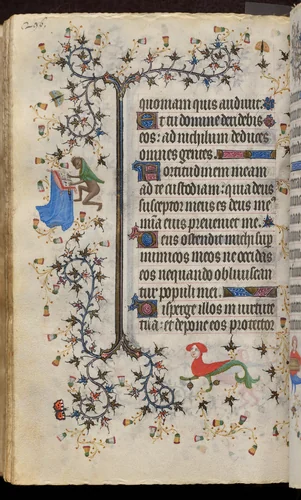 quoniam quis audivit.
Et tu domine deridebis
eos: ad nichylum deduces
omnes gentes.
Fortitudinem meam
ad te custodiam: quia deus
susceptor meus es deus me
mia eius preveniet me.
Deus ostendit michi sup
inimicos meos ne occidas
eos nequando obliviscan
tur populi mei.
Disperge illos in virtute
tua: et depone eos protector